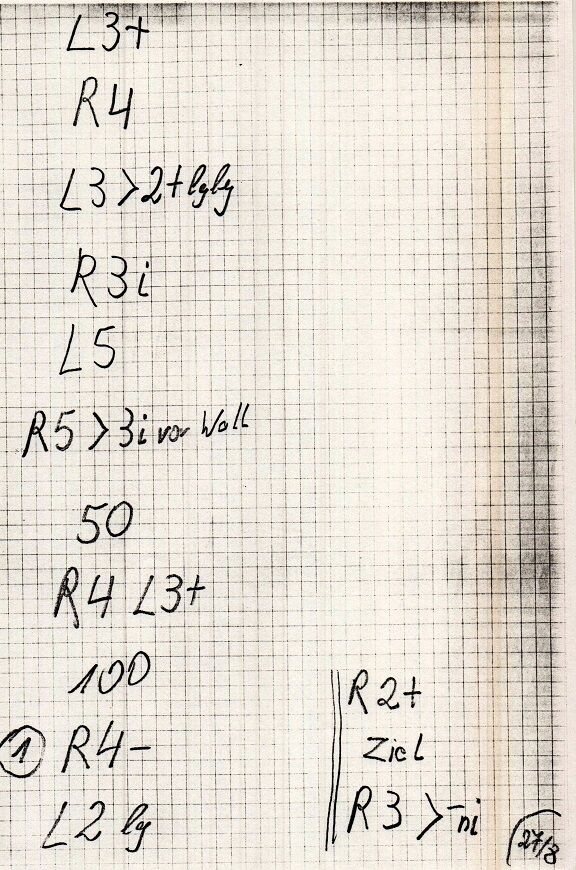 L3+
R4
L3>2+lglg
R3i
L5
R5>3i vor Wall
50
R4 L3+
100
① R4-
L2 lg
R2+
Ziel
R3 > -ni
27/8